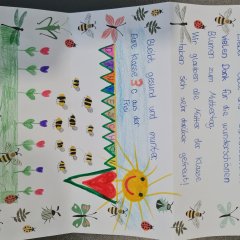 Vielen Dank für die wunderschönen
Blumen zum Muttertag.
Wir glauben alle Mütter der Klasse
haben sich sehr darüber gefreut!
Bleibt gesund und munter,
Eure Klasse 3c aus der